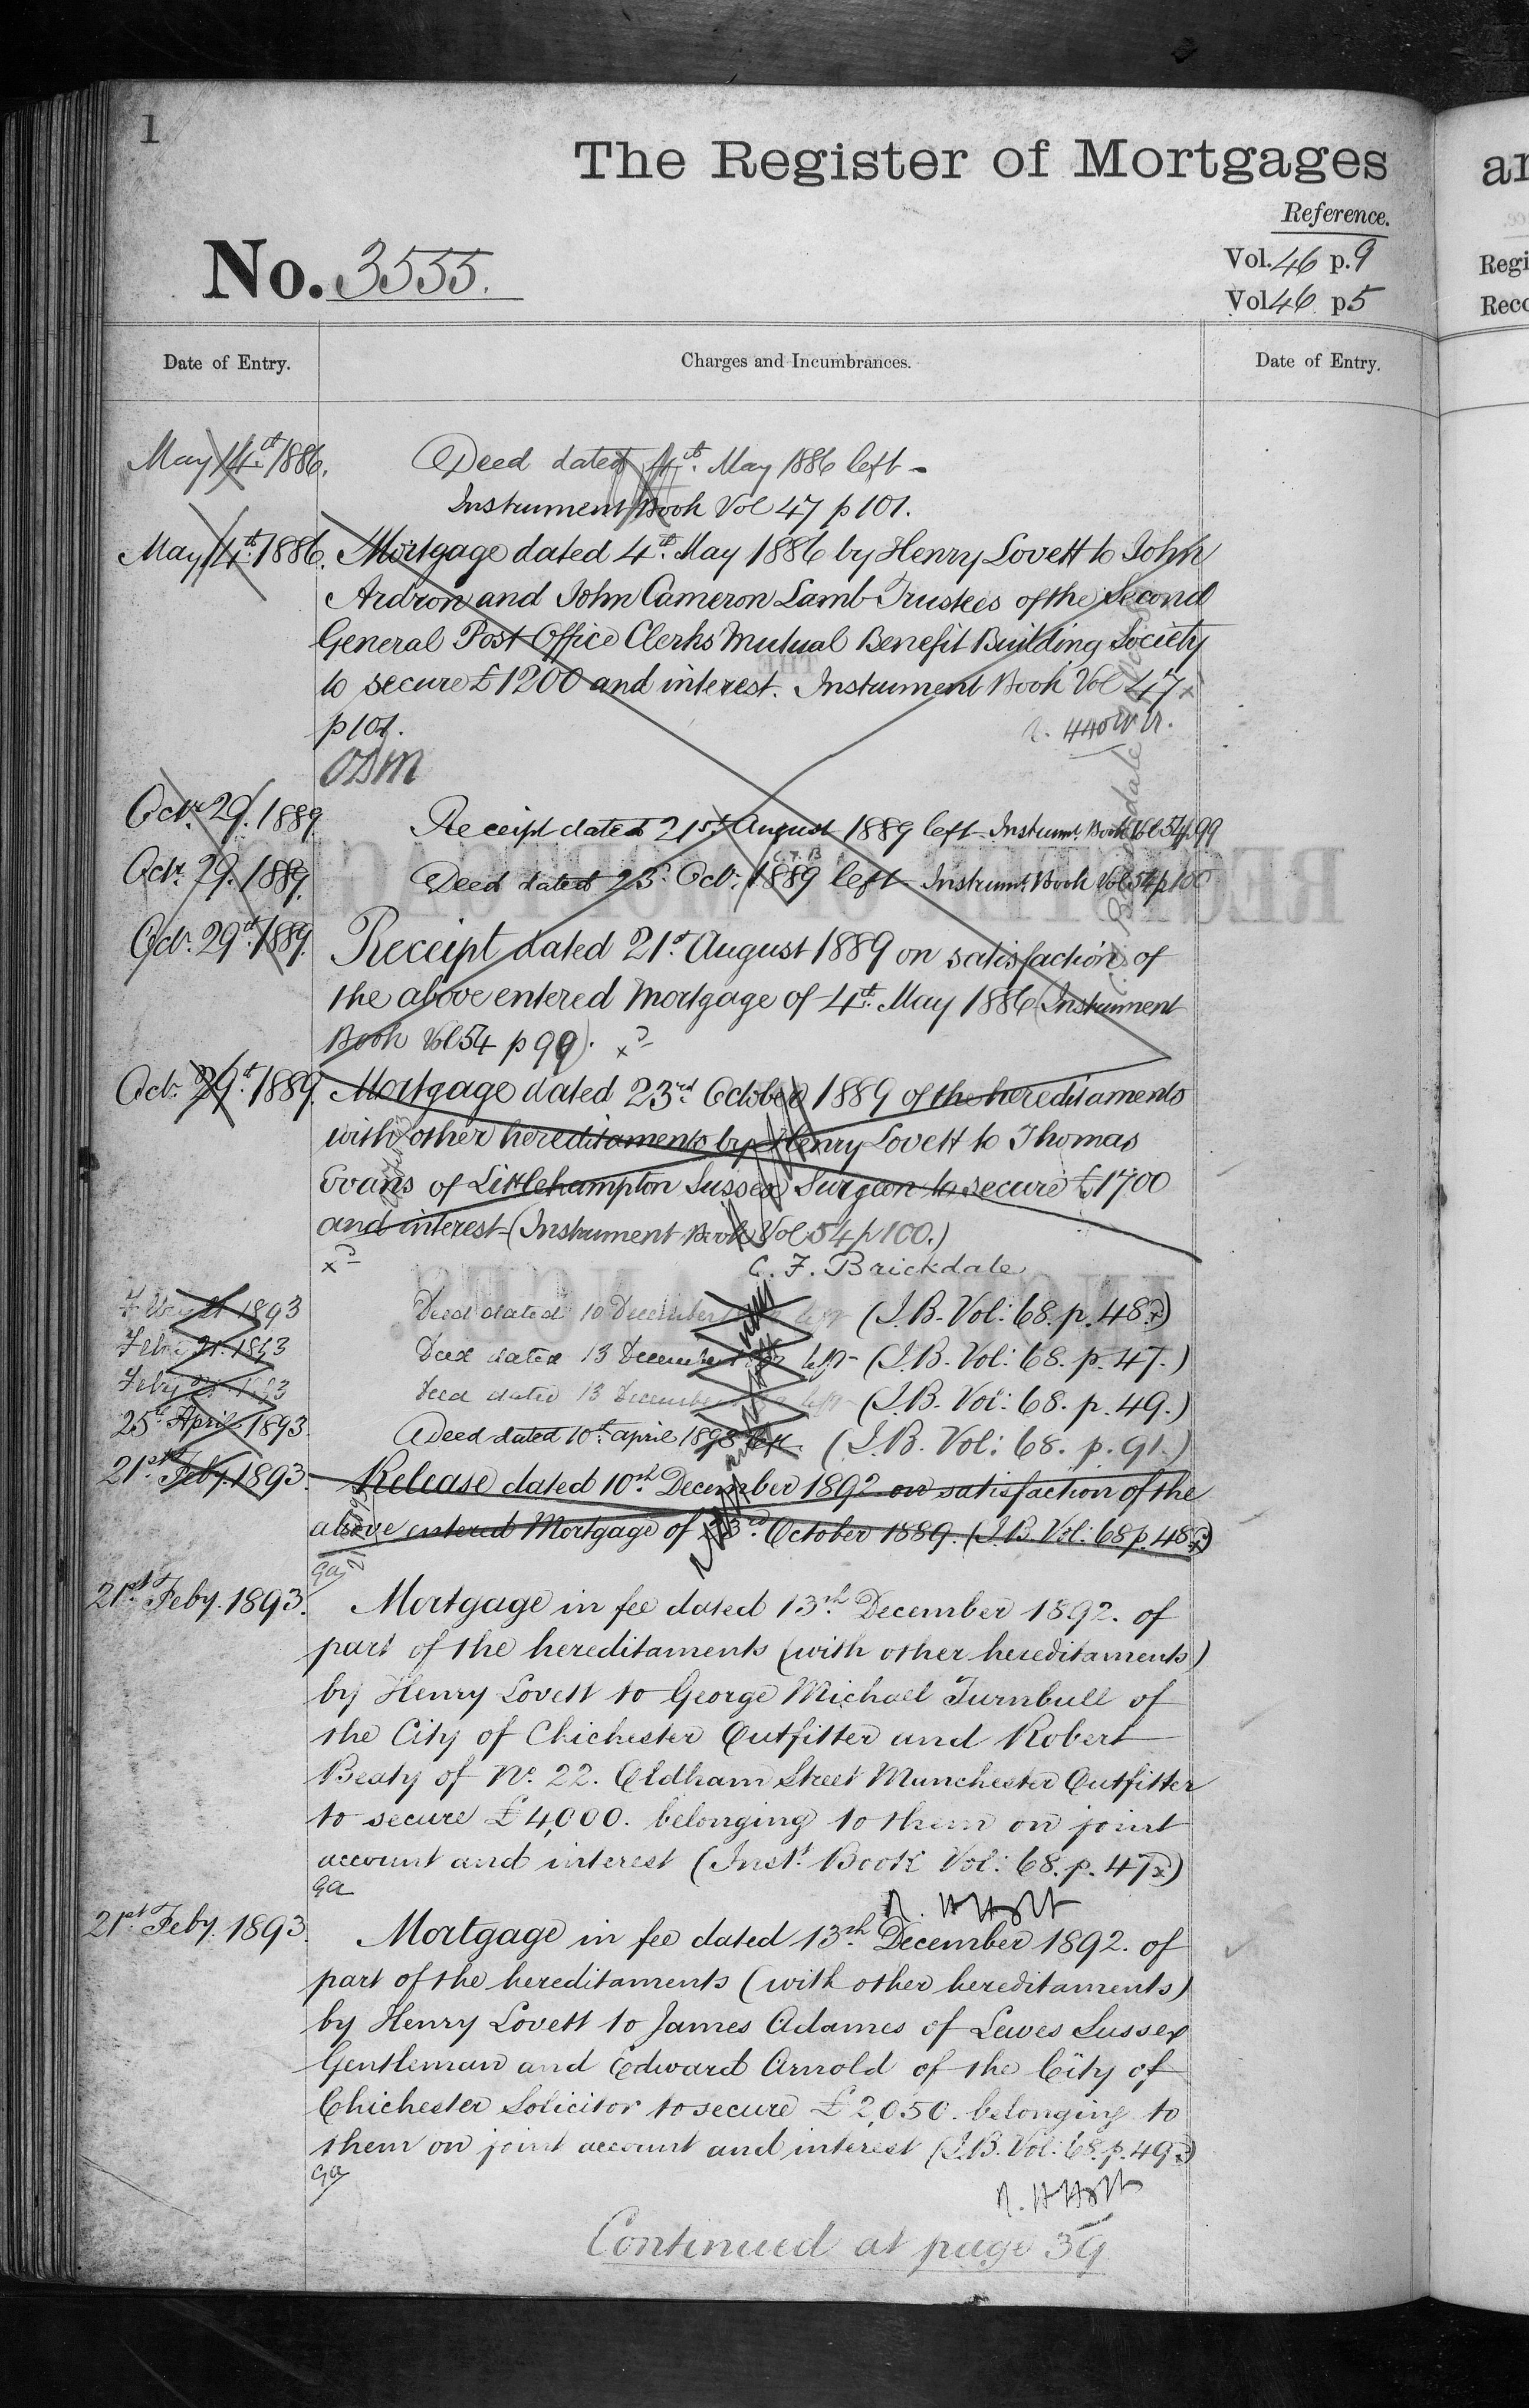 1
The Register of Mortgages
Reference.
No. 3535.
Vol. 46 p. 9
Vol 46 p 5
Regi
Reco
Date of Entry.
Charges and Incumbrances.
Date of Entry.
May 14th 1886. Deed dated 4th May 1886 left -
Instrument Book Vol 47 p 101.
May 14th 1886. Mortgage dated 4th May 1886 by Henry Lovett to John
Ardron and John Cameron Lamb Trustees of the Second
General Post Office Clerks Mutual Benefit Building Society
to secure £1200 and interest. Instrument Book Vol 47
p 101.
Octr. 29. 1889. Receipt dated 21st August 1889 left Instrumt. Book Vol 54 p 99
Octr. 29. 1889. Deed dated 23 Octr. 1889 left Instrumt. Book Vol 54 p 100
Octr. 29th 1889. Receipt dated 21st August 1889 on satisfaction of
the above entered Mortgage of 4th May 1886 (Instrument
Book Vol 54 p 99).
Octr. 29th 1889. Mortgage dated 23rd October 1889 of the hereditaments
with other hereditaments by Henry Lovett to Thomas
Evans of Littlehampton Sussex Surgeon to secure £1700
and interest (Instrument Book Vol 54 p 100.)
C. F. Brickdale
1893 Deed dated 10 December left (I.B. Vol: 68. p. 48.)
Feby 21. 1893 Deed dated 13 December left (I.B. Vol: 68. p. 47.)
Feby 21. 1893 Deed dated 13 December left (I.B. Vol: 68. p. 49.)
25th April 1893. Deed dated 10th april 1893 left. (I.B. Vol: 68. p. 91.)
21st Feby. 1893. Release dated 10th December 1892 on satisfaction of the
above entered Mortgage of 23rd October 1889. (I.B. Vol: 68 p. 48.)
ga
21st Feby. 1893. Mortgage in fee dated 13th December 1892. of
part of the hereditaments (with other hereditaments)
by Henry Lovett to George Michael Turnbull of
the City of Chichester Outfitter and Robert
Beaty of No. 22. Oldham Street Manchester Outfitter
to secure £4,000. belonging to them on joint
account and interest (Inst. Book Vol: 68. p. 47)
ga
21st Feby. 1893. Mortgage in fee dated 13th December 1892. of
part of the hereditaments (with other hereditaments)
by Henry Lovett to James Adames of Lewes Sussex
Gentleman and Edward Arnold of the City of
Chichester Solicitor to secure £2,050. belonging to
them on joint account and interest (I.B. Vol: 68. p. 49)
ga
Continued at page 39